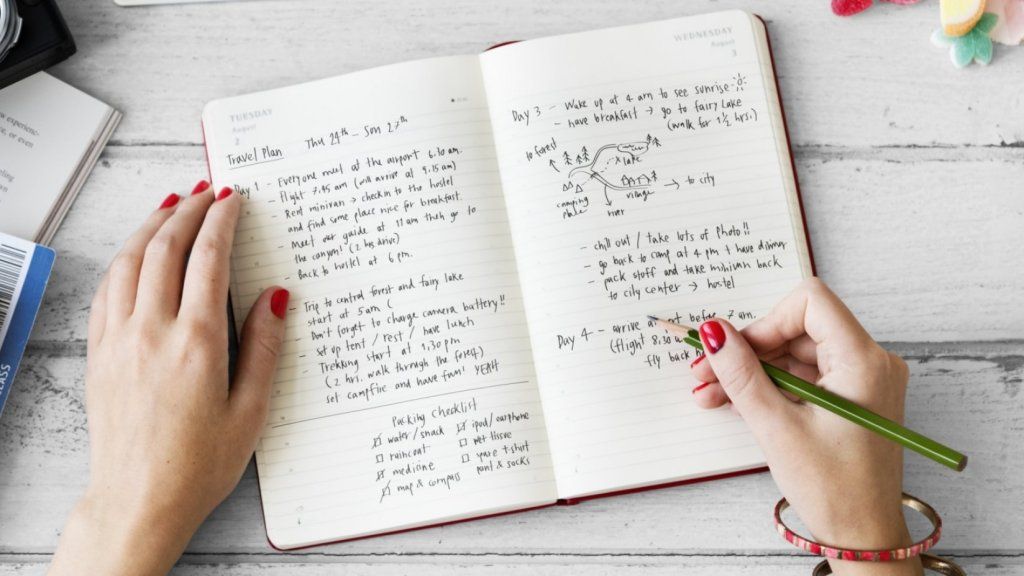 TUESDAY
August
2
Travel Plan Thu 24th - Son 27th
Day 1 - Everyone meet at the airport 6.10 am.
- Flight 7.45 am (will arrive at 9.15 am)
- Rent minivan → checkin to the hostel
and find some place nice for breakfast
- Meet our guide at 11 am then go to
the canyon (2 hrs drive)
- Back to hostel at 6 pm.
- Trip to central forest and fairy lake
start at 5 am (
Don't forget to charge camera battery!!
- Set up tent / rest / have lunch
- Trekking start at 1.30 pm
(2 hrs. walk through the forest)
set campfire and have fun! YEAH
Packing Checklist
water / snack
raincoat
medicine
map & compass
ipod / earphone
wet tissue
t-shirt
pant & socks
WEDNESDAY
August
3
Day 3 - Wake up at 4 am to see sunrise
- have breakfast → go to fairy lake
(walk for 1 1/2 hrs.)
to forest
lake
camping
village
→ to city
river
- chill out / take lots of photo!!
- go back to camp at 4 pm + have dinner
- pack stuff and take minivan back
to city center → hostel
Day 4 - arrive before 7 am.
(flight 8:30
fly back
experience-
or even
CLASS